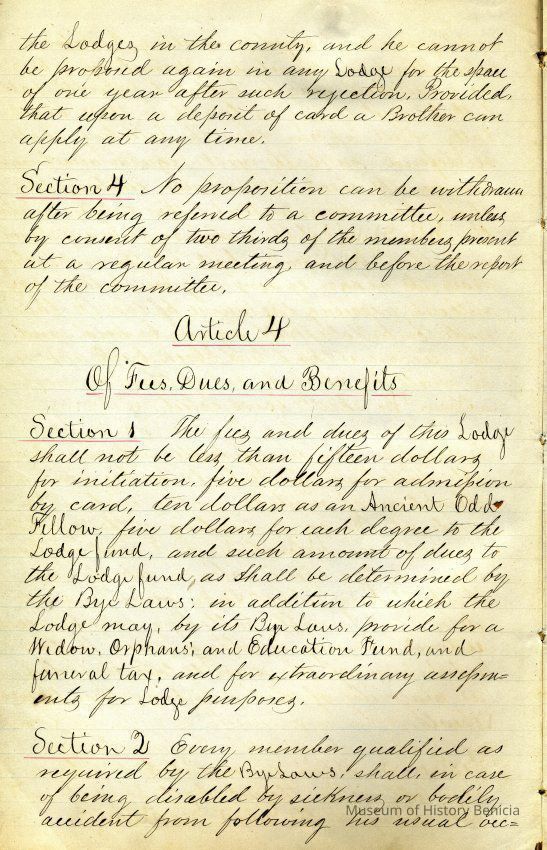 the Lodges in the county, and he cannot
be proposed again in any Lodge for the space
of one year after such rejection, Provided,
that upon a deposit of card a Brother can
apply at any time.
Section 4 No proposition can be withdrawn
after being referred to a committee, unless
by consent of two thirds of the members present
at a regular meeting, and before the report
of the committee.
Article 4
Of Fees, Dues, and Benefits
Section 1 The fees and dues of this Lodge
shall not be less than fifteen dollars
for initiation, five dollars for admission
by card, ten dollars as an Ancient Odd
Fellow, five dollars for each degree to the
Lodge fund, and such amount of dues to
the Lodge fund, as shall be determined by
the Bye Laws: in addition to which the
Lodge may, by its Bye Laws, provide for a
Widow, Orphans', and Education Fund, and
funeral tax, and for extraordinary assessm=
ents for Lodge purposes.
Section 2 Every member qualified as
required by the Bye Laws, shall, in case
of being disabled by sickness or bodily
accident from following his usual occ=
Museum of History Benicia